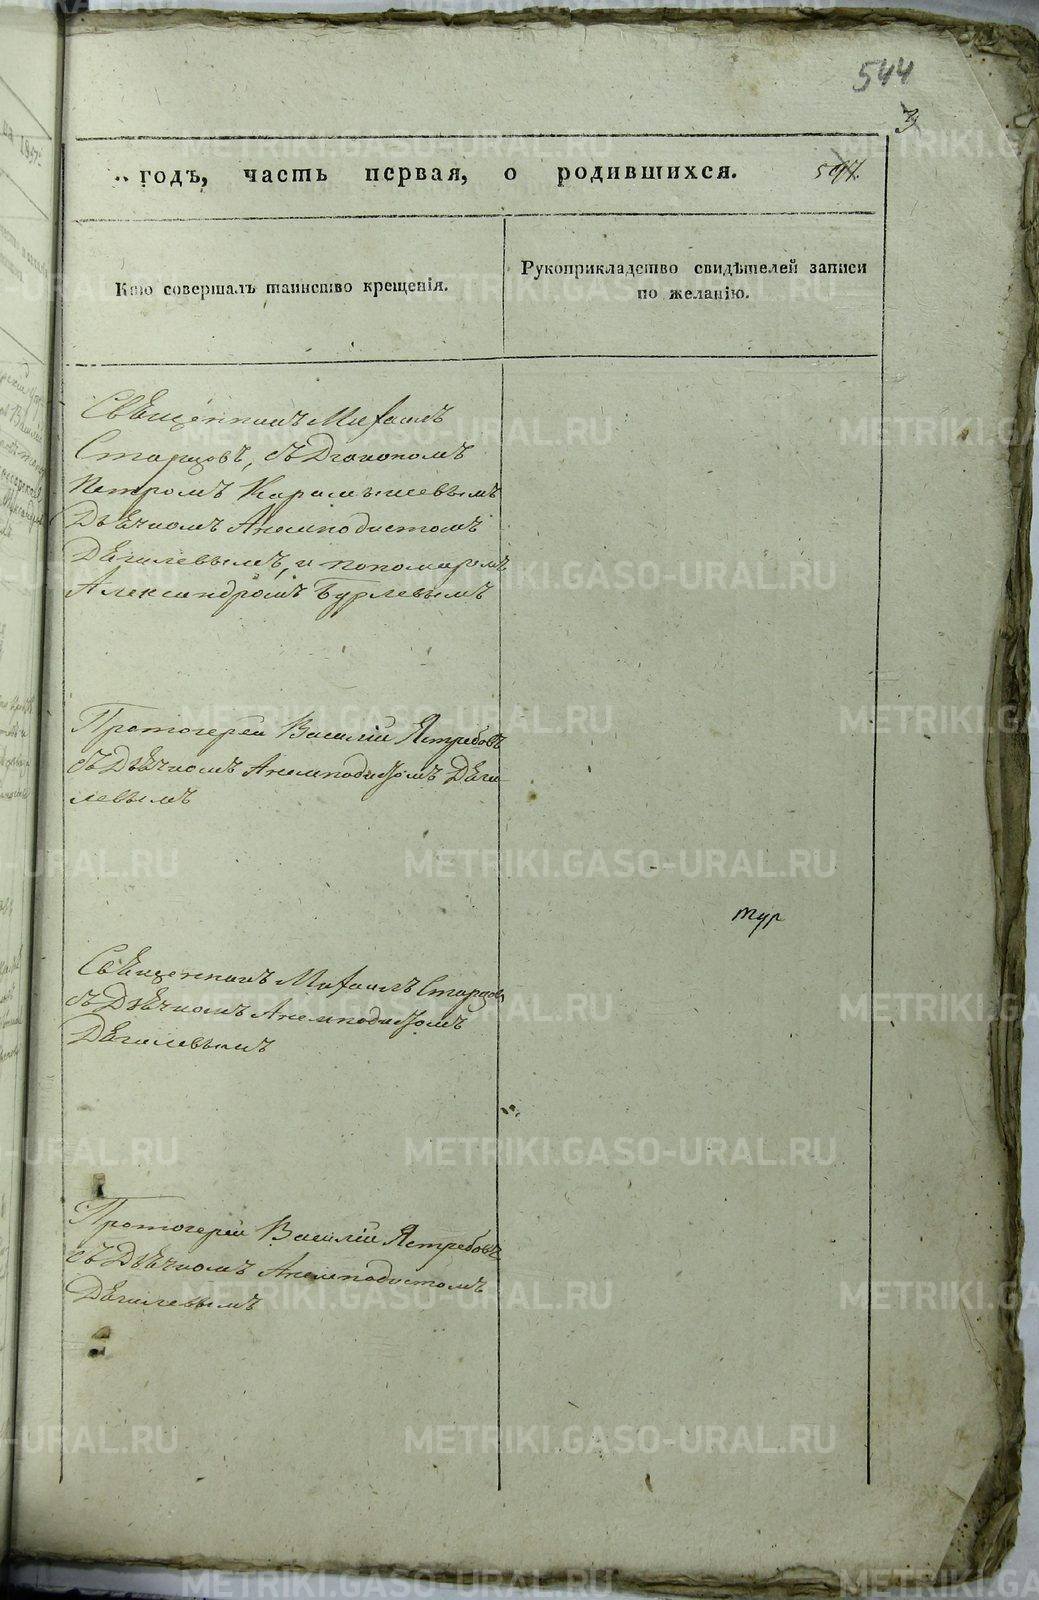 544
3
годъ, часть первая, о родившихся. 597.
Кто совершалъ таинство крещенія.
Рукоприкладство свидѣтелей записи
по желанію.
Священникъ Михаилъ
Старцовъ, съ Діакономъ
Петромъ Карамышевымъ
Дьячкомъ Анемподистомъ
Дягилевымъ, и пономаремъ
Александромъ Бурлевымъ
Протоіерей Василій Ястребовъ
съ Дьячкомъ Анемподистомъ Дяги-
левымъ
тур
Священникъ Михаилъ Старцовъ
съ Дьячкомъ Анемподистомъ
Дягилевымъ
Протоіерей Василій Ястребовъ
съ Дьячкомъ Анемподистомъ
Дягилевымъ
METRIKI.GASO-URAL.RU